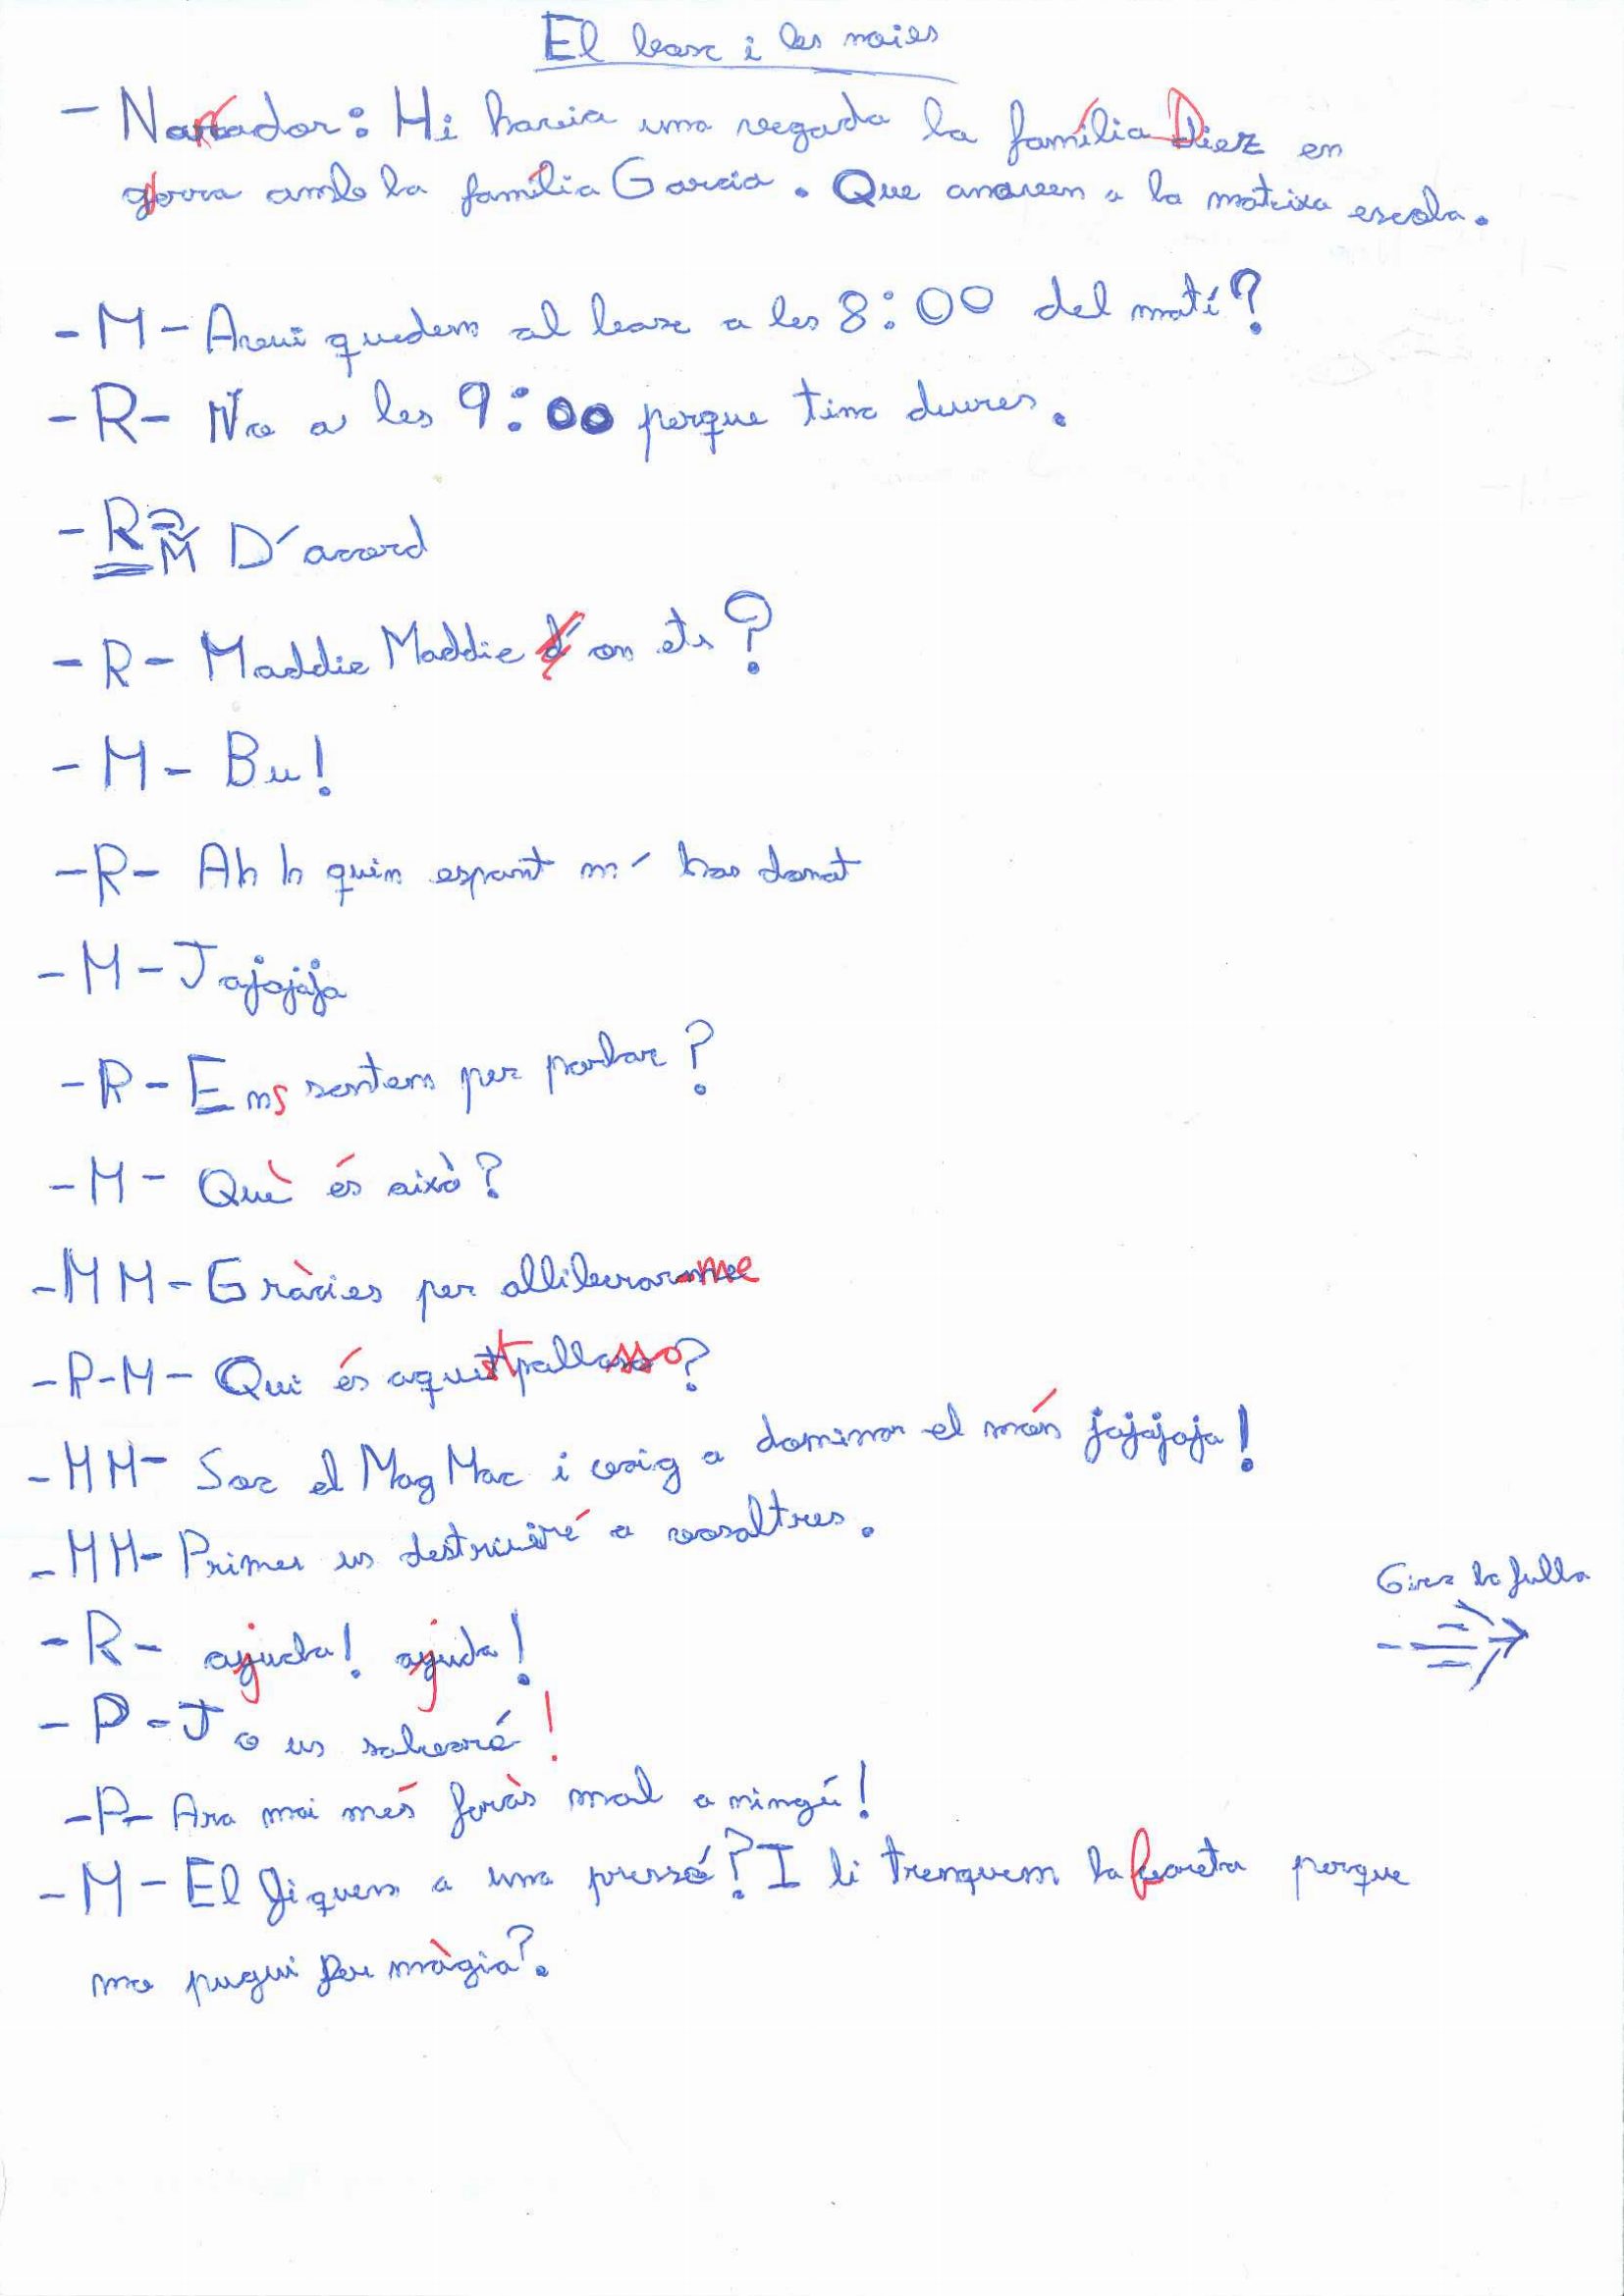 El bosc i les noies
- Narrador: Hi havia una vegada la família Diez en
gorra amb la família Garcia. Que anaven a la mateixa escola.
- M - Avui quedem al bosc a les 8:00 del matí?
- R - No a les 9:00 perque tinc deures.
- R - M D'acord
- R - Maddie Maddie on ets?
- M - Bu!
- R - Ah h quin espant m' has donat
- M - Jajajaja
- R - Ens sentem per parlar?
- M - Què és això?
- MM - Gràcies per alliberar-me
- R-M - Qui és aquest pallasso?
- MM - Soc el Mag Mac i vaig a dominar el món jajajaja!
- MM - Primer us destruiré a vosaltres.
Gira la fulla
- R - ajuda! ajuda!
- P - Jo us salvaré!
- P - Ara mai més faràs mal a ningú!
- M - El fiquem a una pressó? I li trenquem la vareta perque
no pugui fer màgia?.